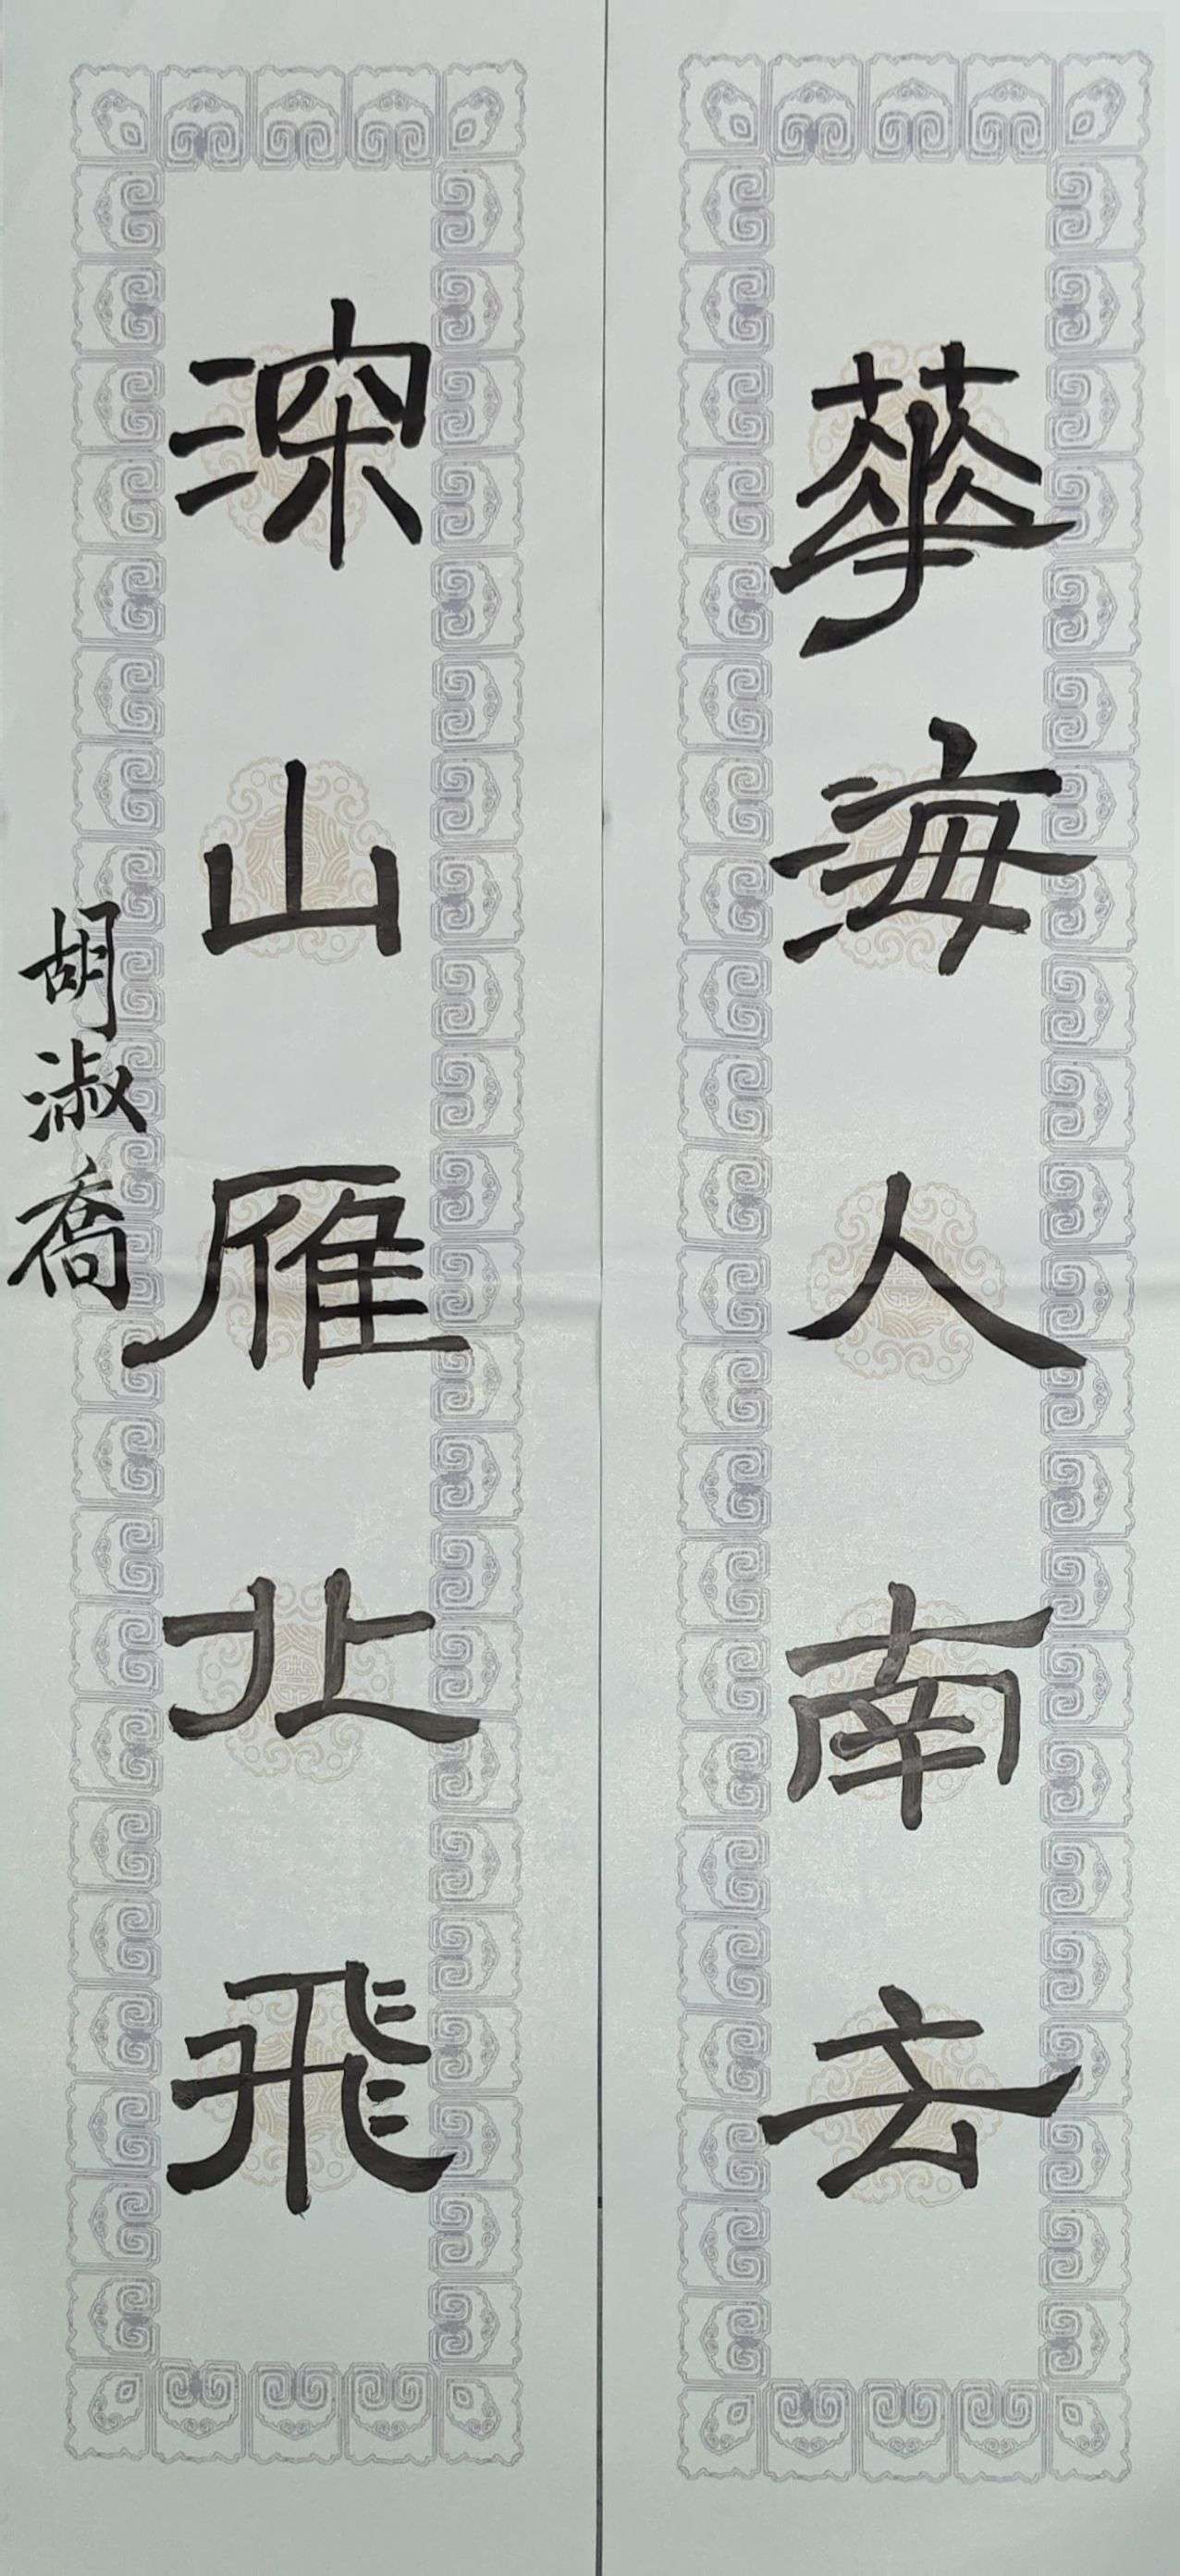 華海人南去
深山雁北飛
胡淑喬